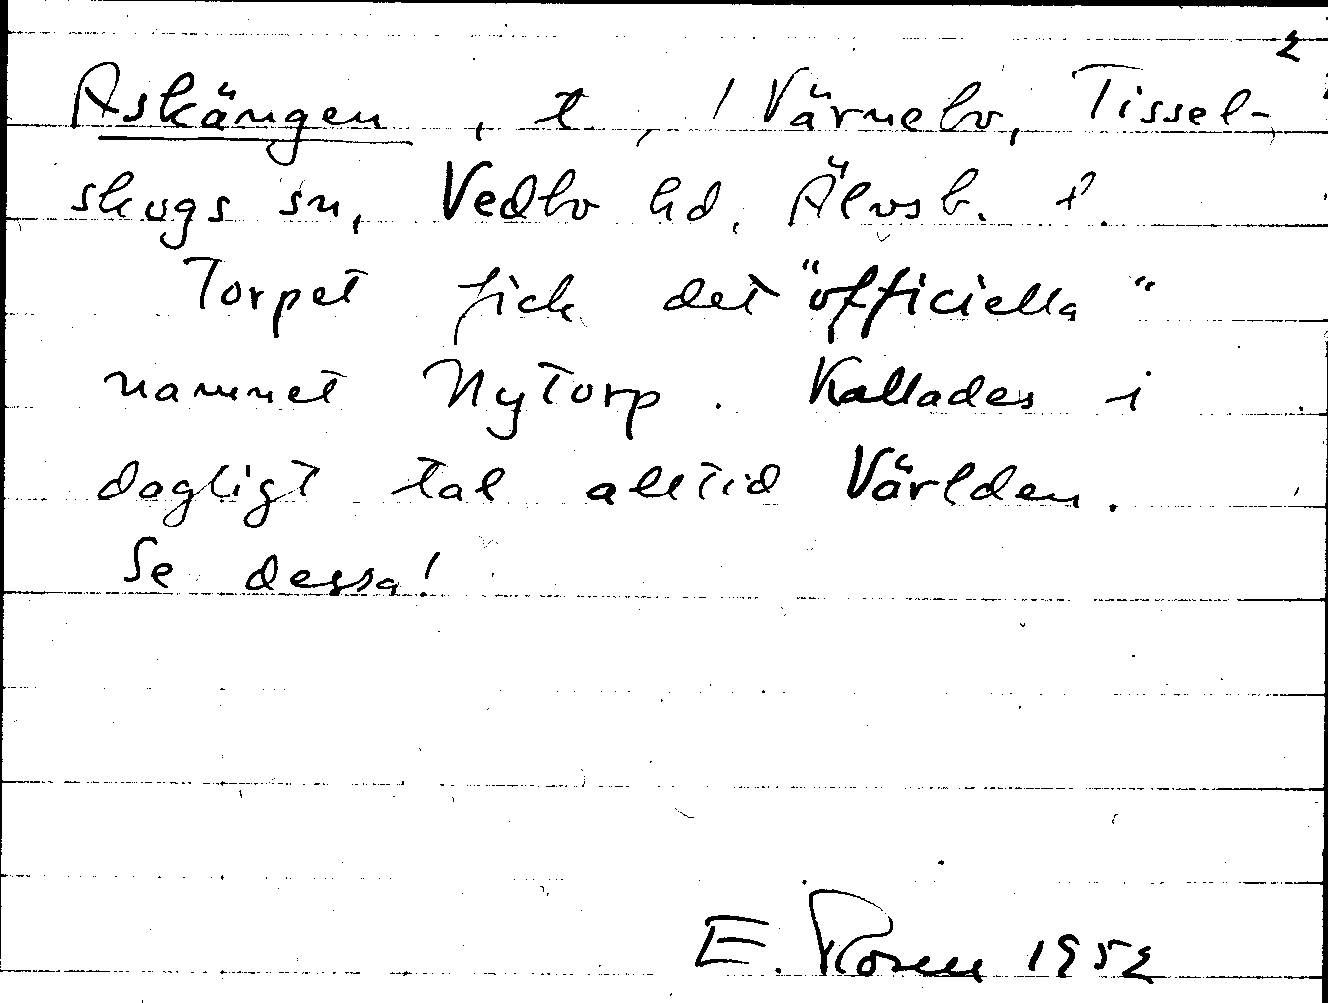 2
Askängen, t, / Värnebo, Tissel-
skogs sn, Vedbo hd, Älvsb. l.
Torpet fick det "officiella"
namnet Nytorp. Kallades i
dagligt tal alltid Världen.
Se dessa!
E. Rosen 1952